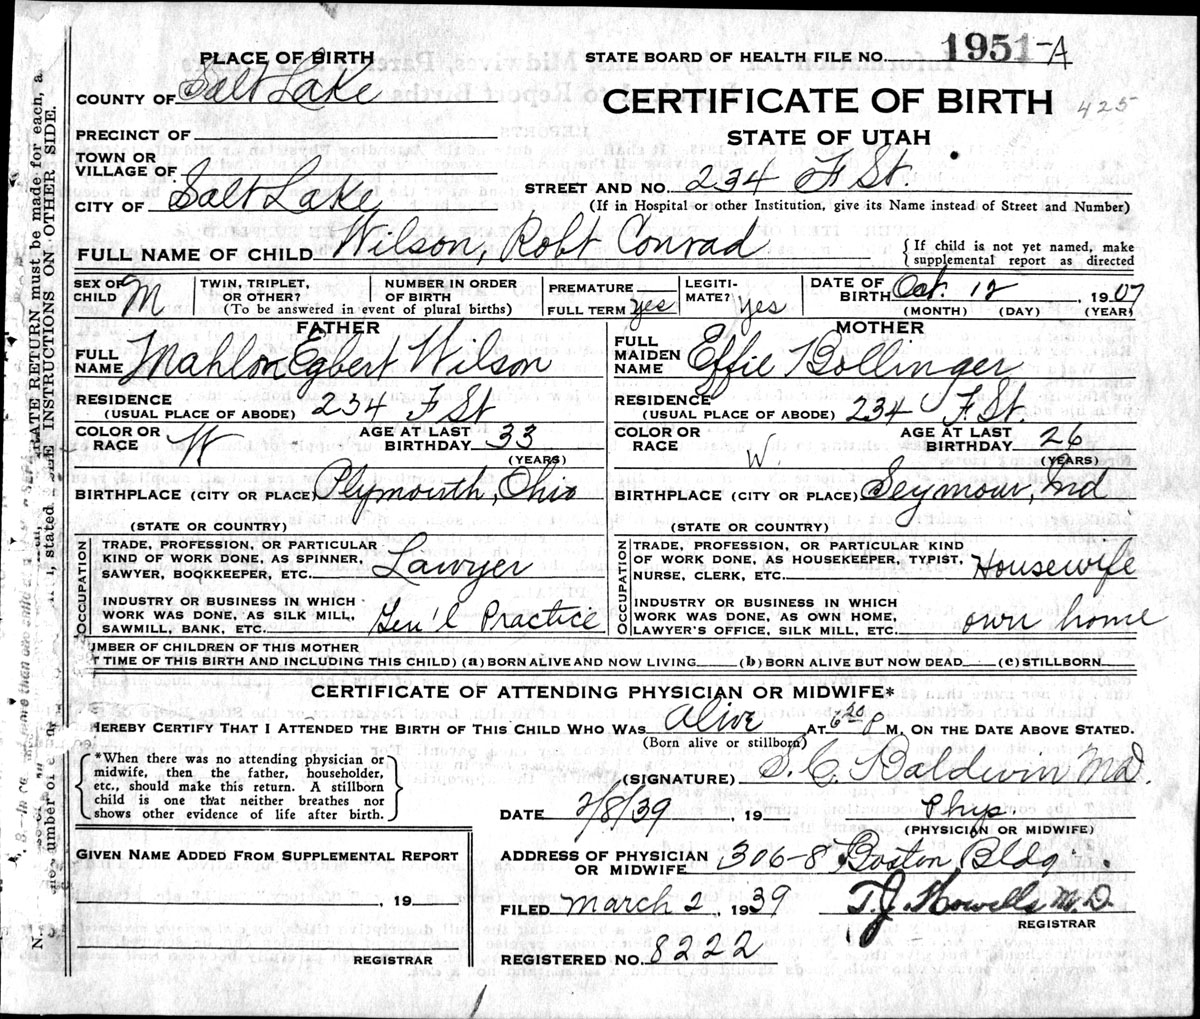 PLACE OF BIRTH
STATE BOARD OF HEALTH FILE NO. 1951-A
COUNTY OF Salt Lake
CERTIFICATE OF BIRTH
425
PRECINCT OF
STATE OF UTAH
TOWN OR VILLAGE OF
STREET AND NO. 234 F St.
CITY OF Salt Lake
(If in Hospital or other Institution, give its Name instead of Street and Number)
FULL NAME OF CHILD Wilson, Robt Conrad
{If child is not yet named, make supplemental report as directed
SEX OF CHILD M
TWIN, TRIPLET, OR OTHER?
NUMBER IN ORDER OF BIRTH
(To be answered in event of plural births)
PREMATURE
FULL TERM yes
LEGITIMATE? yes
DATE OF BIRTH Oct. 12, 1907
(MONTH) (DAY) (YEAR)
FATHER
FULL NAME Mahlon Egbert Wilson
RESIDENCE (USUAL PLACE OF ABODE) 234 F St
COLOR OR RACE W
AGE AT LAST BIRTHDAY 33 (YEARS)
BIRTHPLACE (CITY OR PLACE) Plymouth, Ohio
(STATE OR COUNTRY)
OCCUPATION
TRADE, PROFESSION, OR PARTICULAR KIND OF WORK DONE, AS SPINNER, SAWYER, BOOKKEEPER, ETC. Lawyer
INDUSTRY OR BUSINESS IN WHICH WORK WAS DONE, AS SILK MILL, SAWMILL, BANK, ETC. Gen'l Practice
MOTHER
FULL MAIDEN NAME Effie Bollinger
RESIDENCE (USUAL PLACE OF ABODE) 234 F. St.
COLOR OR RACE W.
AGE AT LAST BIRTHDAY 26 (YEARS)
BIRTHPLACE (CITY OR PLACE) Seymour, Ind
(STATE OR COUNTRY)
OCCUPATION
TRADE, PROFESSION, OR PARTICULAR KIND OF WORK DONE, AS HOUSEKEEPER, TYPIST, NURSE, CLERK, ETC. Housewife
INDUSTRY OR BUSINESS IN WHICH WORK WAS DONE, AS OWN HOME, LAWYER'S OFFICE, SILK MILL, ETC. own home
UMBER OF CHILDREN OF THIS MOTHER
T TIME OF THIS BIRTH AND INCLUDING THIS CHILD) (a) BORN ALIVE AND NOW LIVING (b) BORN ALIVE BUT NOW DEAD (c) STILLBORN
CERTIFICATE OF ATTENDING PHYSICIAN OR MIDWIFE*
HEREBY CERTIFY THAT I ATTENDED THE BIRTH OF THIS CHILD WHO WAS Alive AT 6 30 P M. ON THE DATE ABOVE STATED.
(Born alive or stillborn)
{*When there was no attending physician or midwife, then the father, householder, etc., should make this return. A stillborn child is one that neither breathes nor shows other evidence of life after birth.}
(SIGNATURE) S. C. Baldwin MD.
DATE 2/8/39, 19
Phys.
(PHYSICIAN OR MIDWIFE)
GIVEN NAME ADDED FROM SUPPLEMENTAL REPORT
, 19
REGISTRAR
ADDRESS OF PHYSICIAN OR MIDWIFE 306-8 Boston Bldg.
FILED March 2, 1939
T. J. Howells M.D.
REGISTRAR
REGISTERED NO. 8222